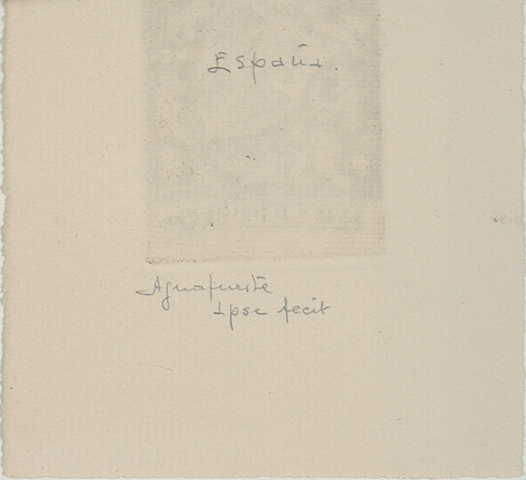 España.
Aguafuerte
Ipse fecit